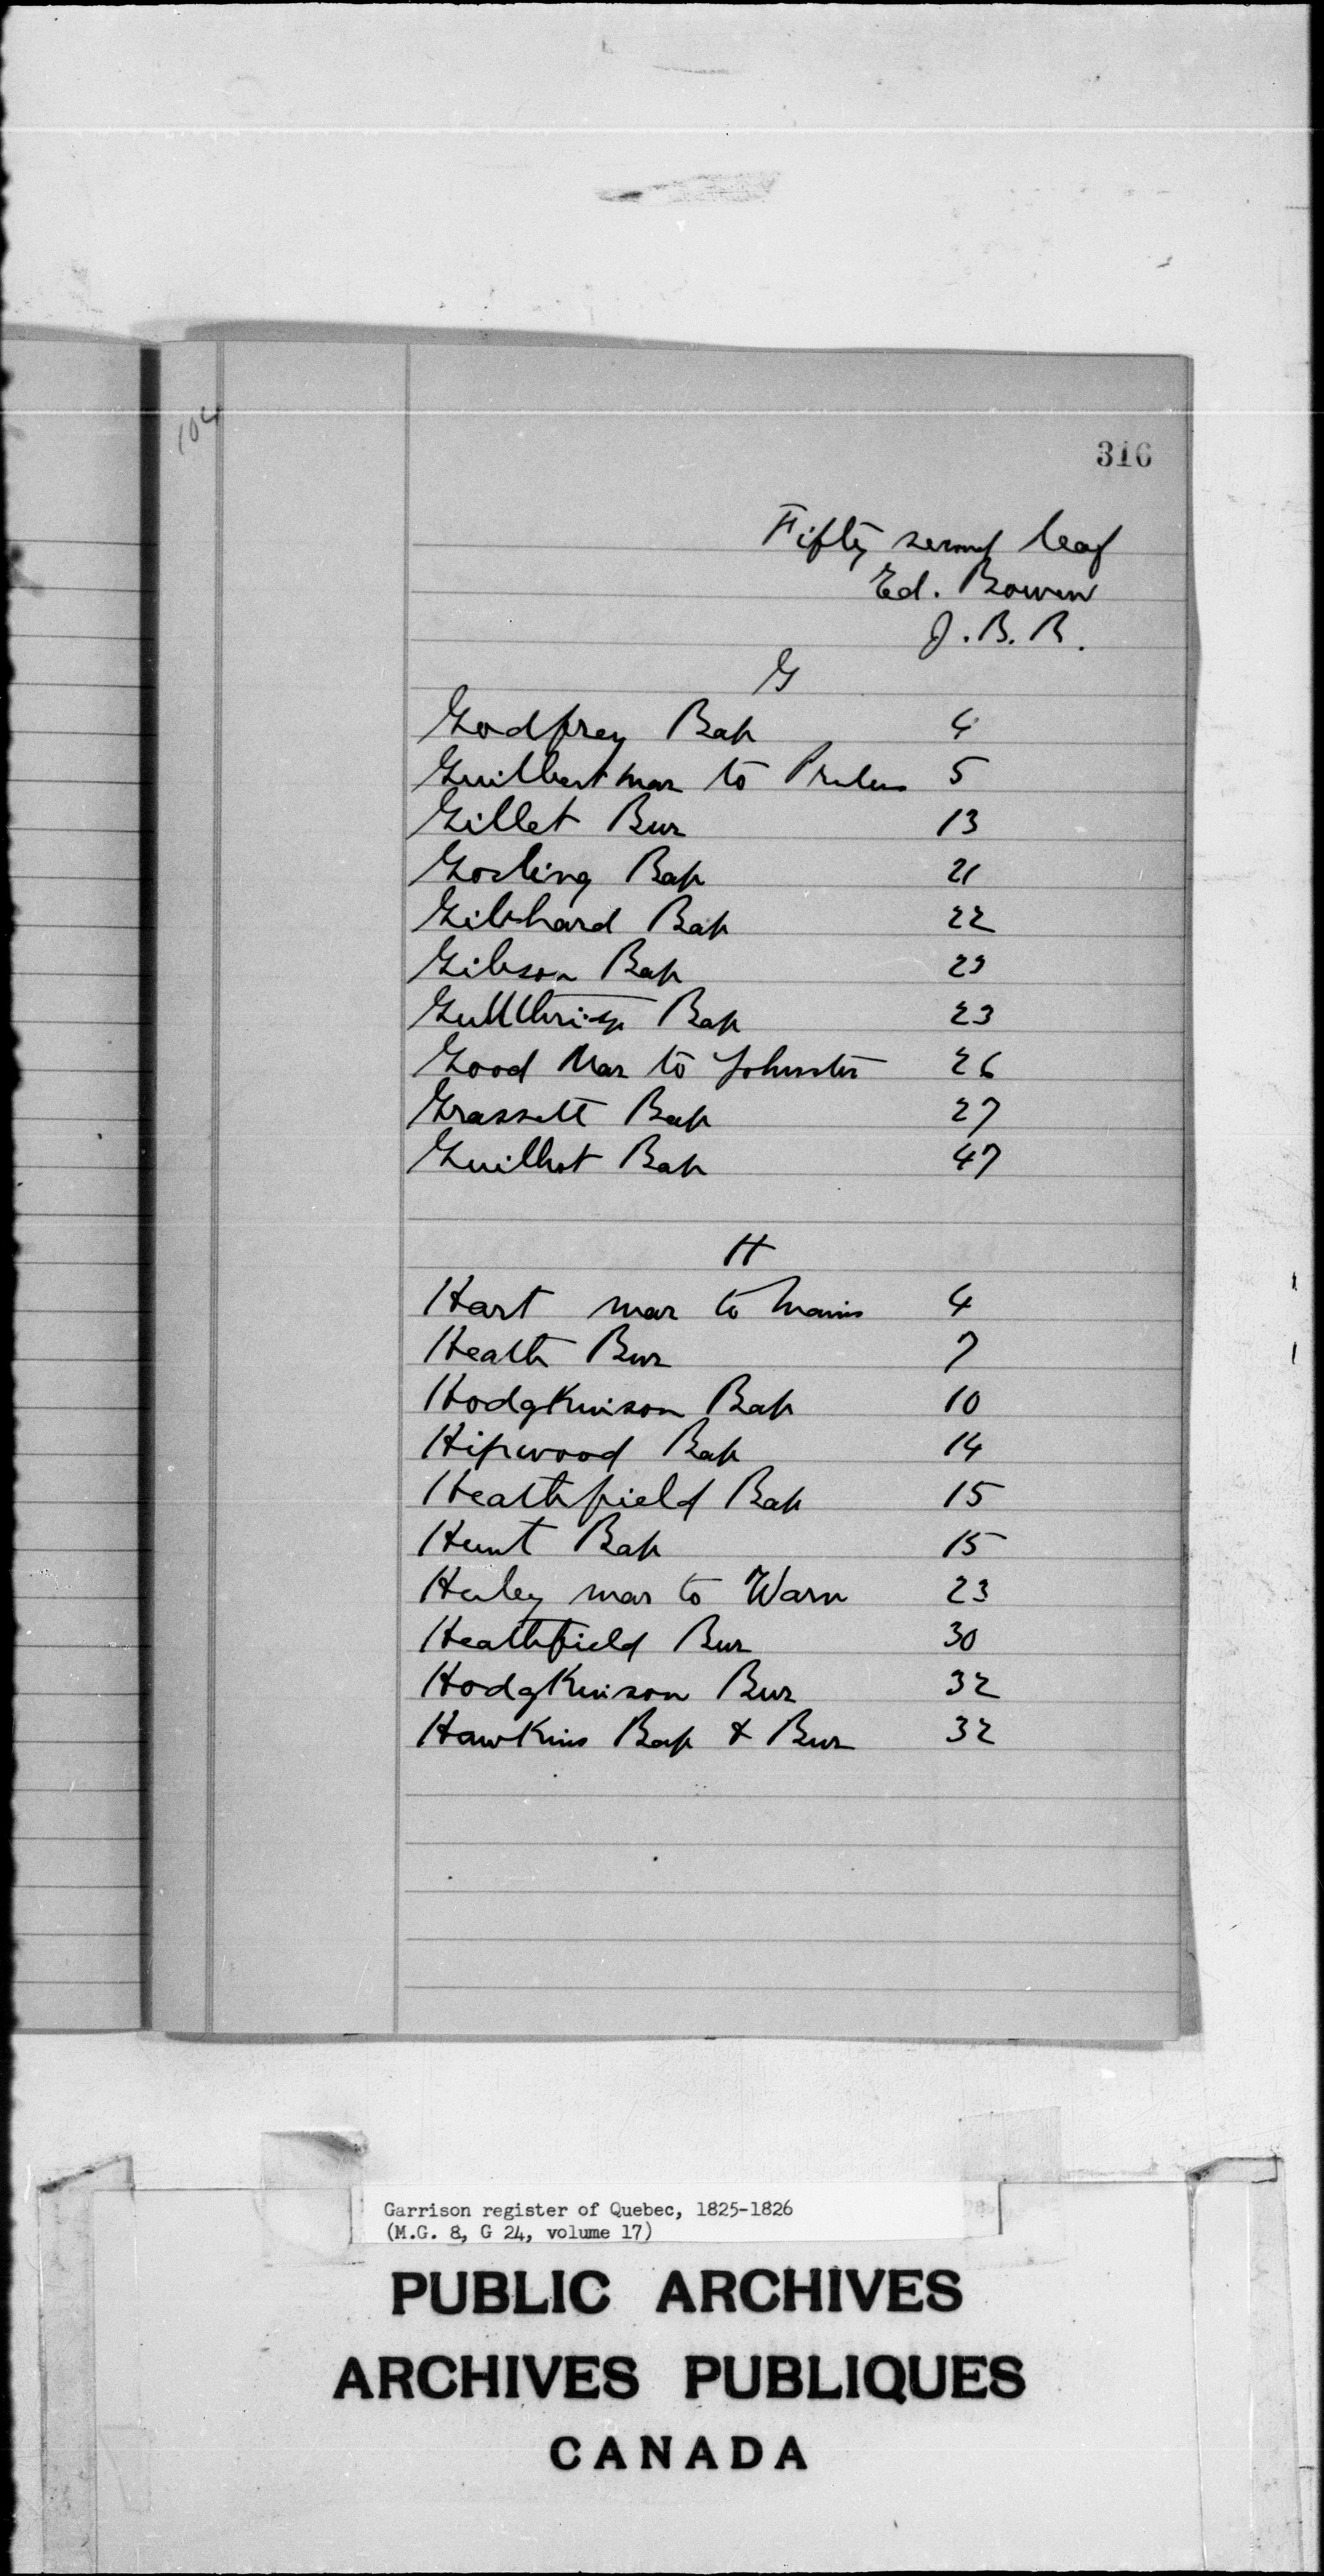 104
316
Fifty second leaf
Ed. Bowen
J. B. R.
G
Godfrey Bap 4
Guilbert mar to 5
Gillet Bur 13
Gosling Bap 21
Gilchard Bap 22
Gibson Bap 23
Bap 23
Good Mar to Johnston 26
Grassett Bap 27
Guilbot Bap 47
H
Hart mar to 4
Heath Bur 7
Hodgkinson Bap 10
Hipwood Bap 14
Heathfield Bap 15
Hunt Bap 15
mar to Warn 23
Heathfield Bur 30
Hodgkinson Bur 32
Hawkins Bap & Bur 32
Garrison register of Quebec, 1825-1826
(M.G. 8, G 24, volume 17)
PUBLIC ARCHIVES
ARCHIVES PUBLIQUES
CANADA